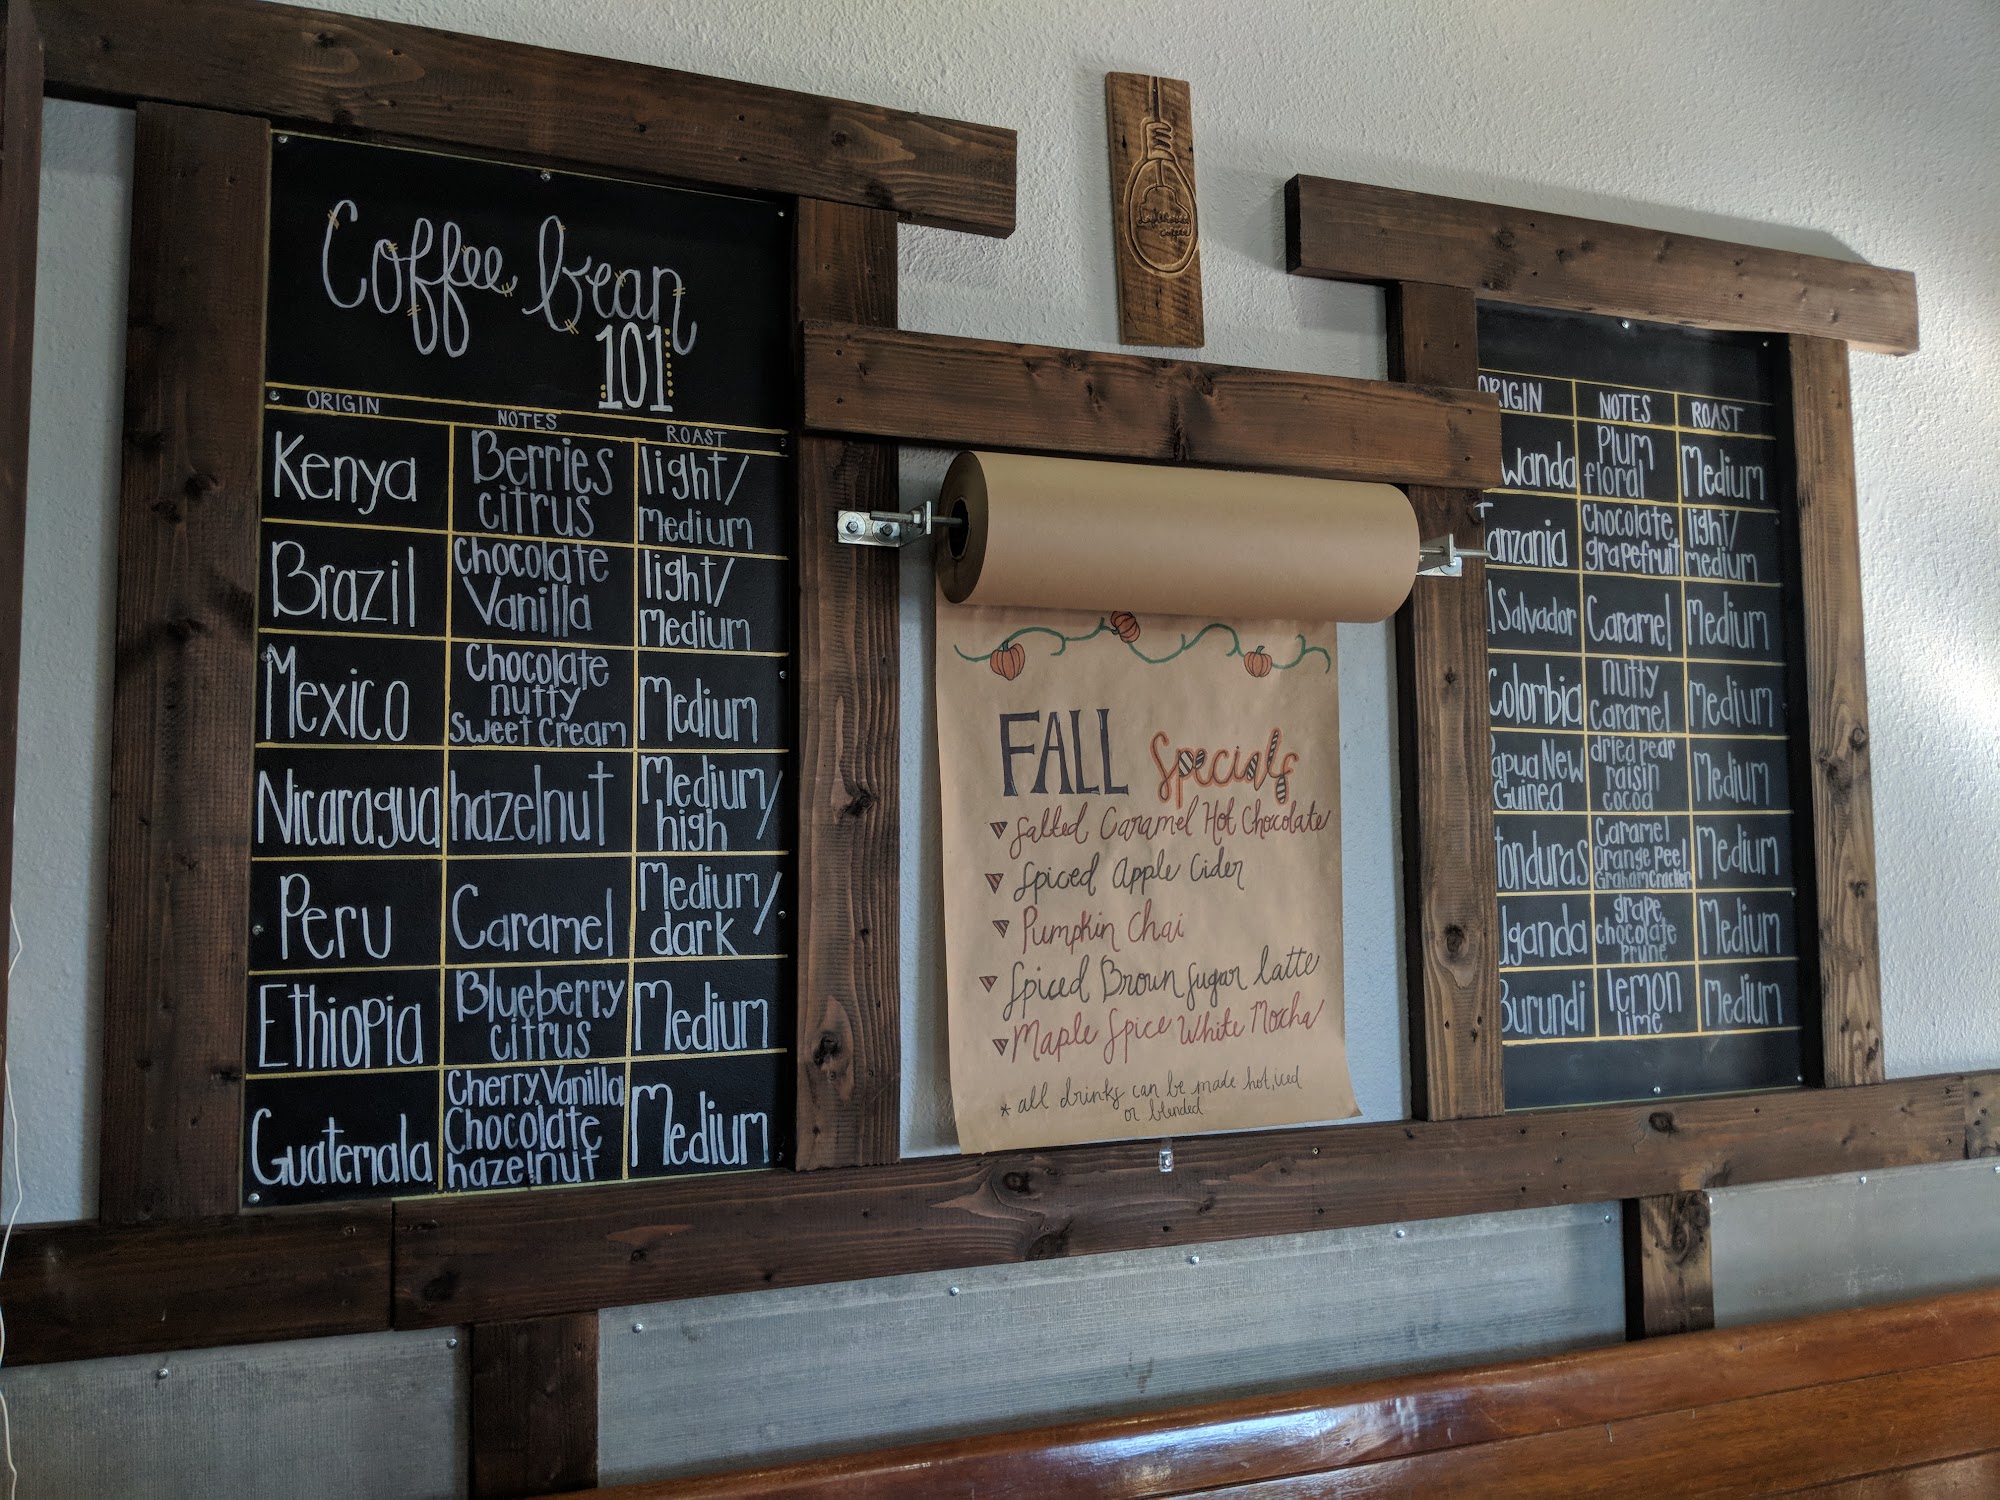 Coffee bean
101
ORIGIN NOTES ROAST
Kenya
Berries
citrus
light/
Medium
Brazil
Chocolate
Vanilla
light/
Medium
Mexico
Chocolate
nutty
Sweet Cream
Medium
Nicaragua
hazelnut
Medium/
high
Peru
Caramel
Medium/
dark
Ethiopia
Blueberry
citrus
Medium
Guatemala
Cherry, Vanilla
Chocolate
hazelnut
Medium
Lighthouse
Coffee
FALL Specials
Salted Caramel Hot Chocolate
Spiced Apple Cider
Pumpkin Chai
Spiced Brown Sugar latte
Maple Spice White Mocha
* all drinks can be made hot, iced
or blended
ORIGIN NOTES ROAST
wanda
Plum
floral
Medium
Tanzania
Chocolate,
grapefruit
light/
medium
l Salvador
Caramel
Medium
Colombia
nutty
caramel
Medium
Papua New
Guinea
dried pear
raisin
cocoa
Medium
Honduras
Caramel
Orange Peel
Graham Cracker
Medium
Uganda
grape,
chocolate
Prune
Medium
Burundi
lemon
lime
Medium